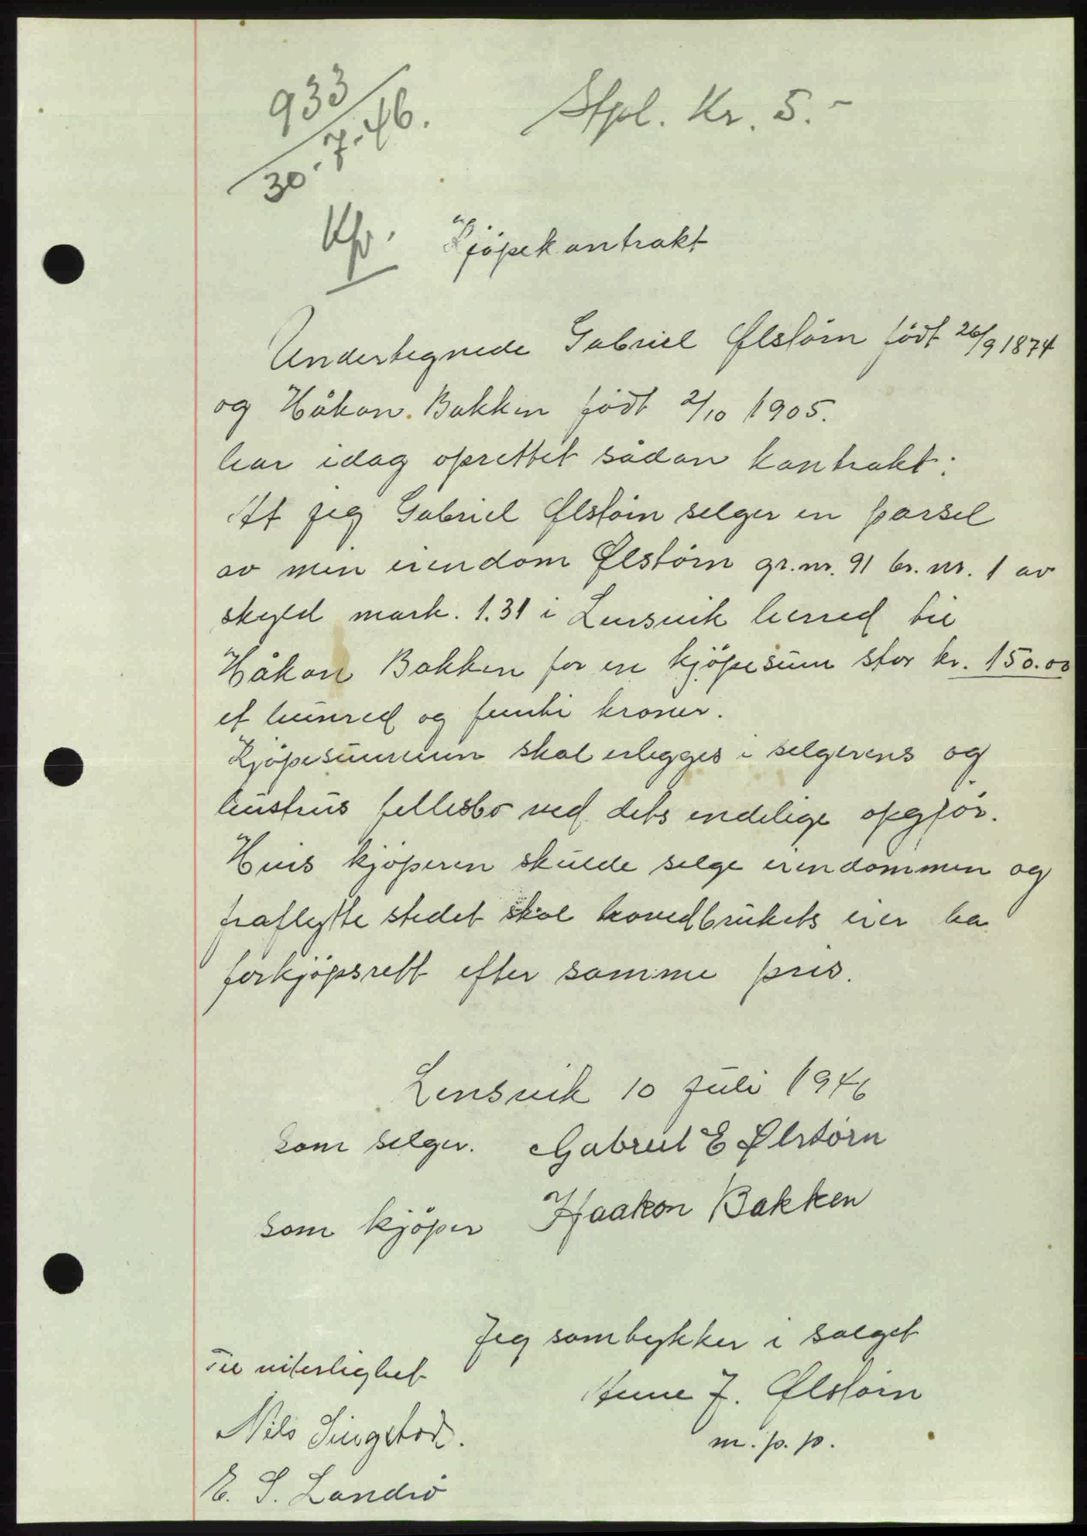 933
30-7-46.
Stpl. Kr. 5.-
Kjöpekontrakt
Undertegnede Gabriel Ølstörn födt 26/9 1874
og Håkon Bakken födt 2/10 1905.
har idag oprettet sådan kontrakt:
At jeg Gabriel Ølstörn selger en parsel
av min eiendom Ølstörn gr.nr. 91 br.nr. 1 av
skyld mark. 1.31 i Lensvik herred til
Håkon Bakken for en kjöpesum stor kr. 150.00
et hunred og femti kroner.
Kjöpesummen skal erlegges i selgerens og
hustrus fellesbo ved dets endelige opgjör.
Hvis kjöperen skulde selge eiendommen og
fraflytte stedet skal hovedbrukets eier ha
forkjöpsrett efter samme pris.
Lensvik 10 juli 1946
som selger. Gabriel E Ølstörn
som kjöper Haakon Bakken
Jeg samtykker i salget
Til viterlighet
Anne J. Ølstörn
m.p.p.
Nils Singstad.
E. S. Landrö